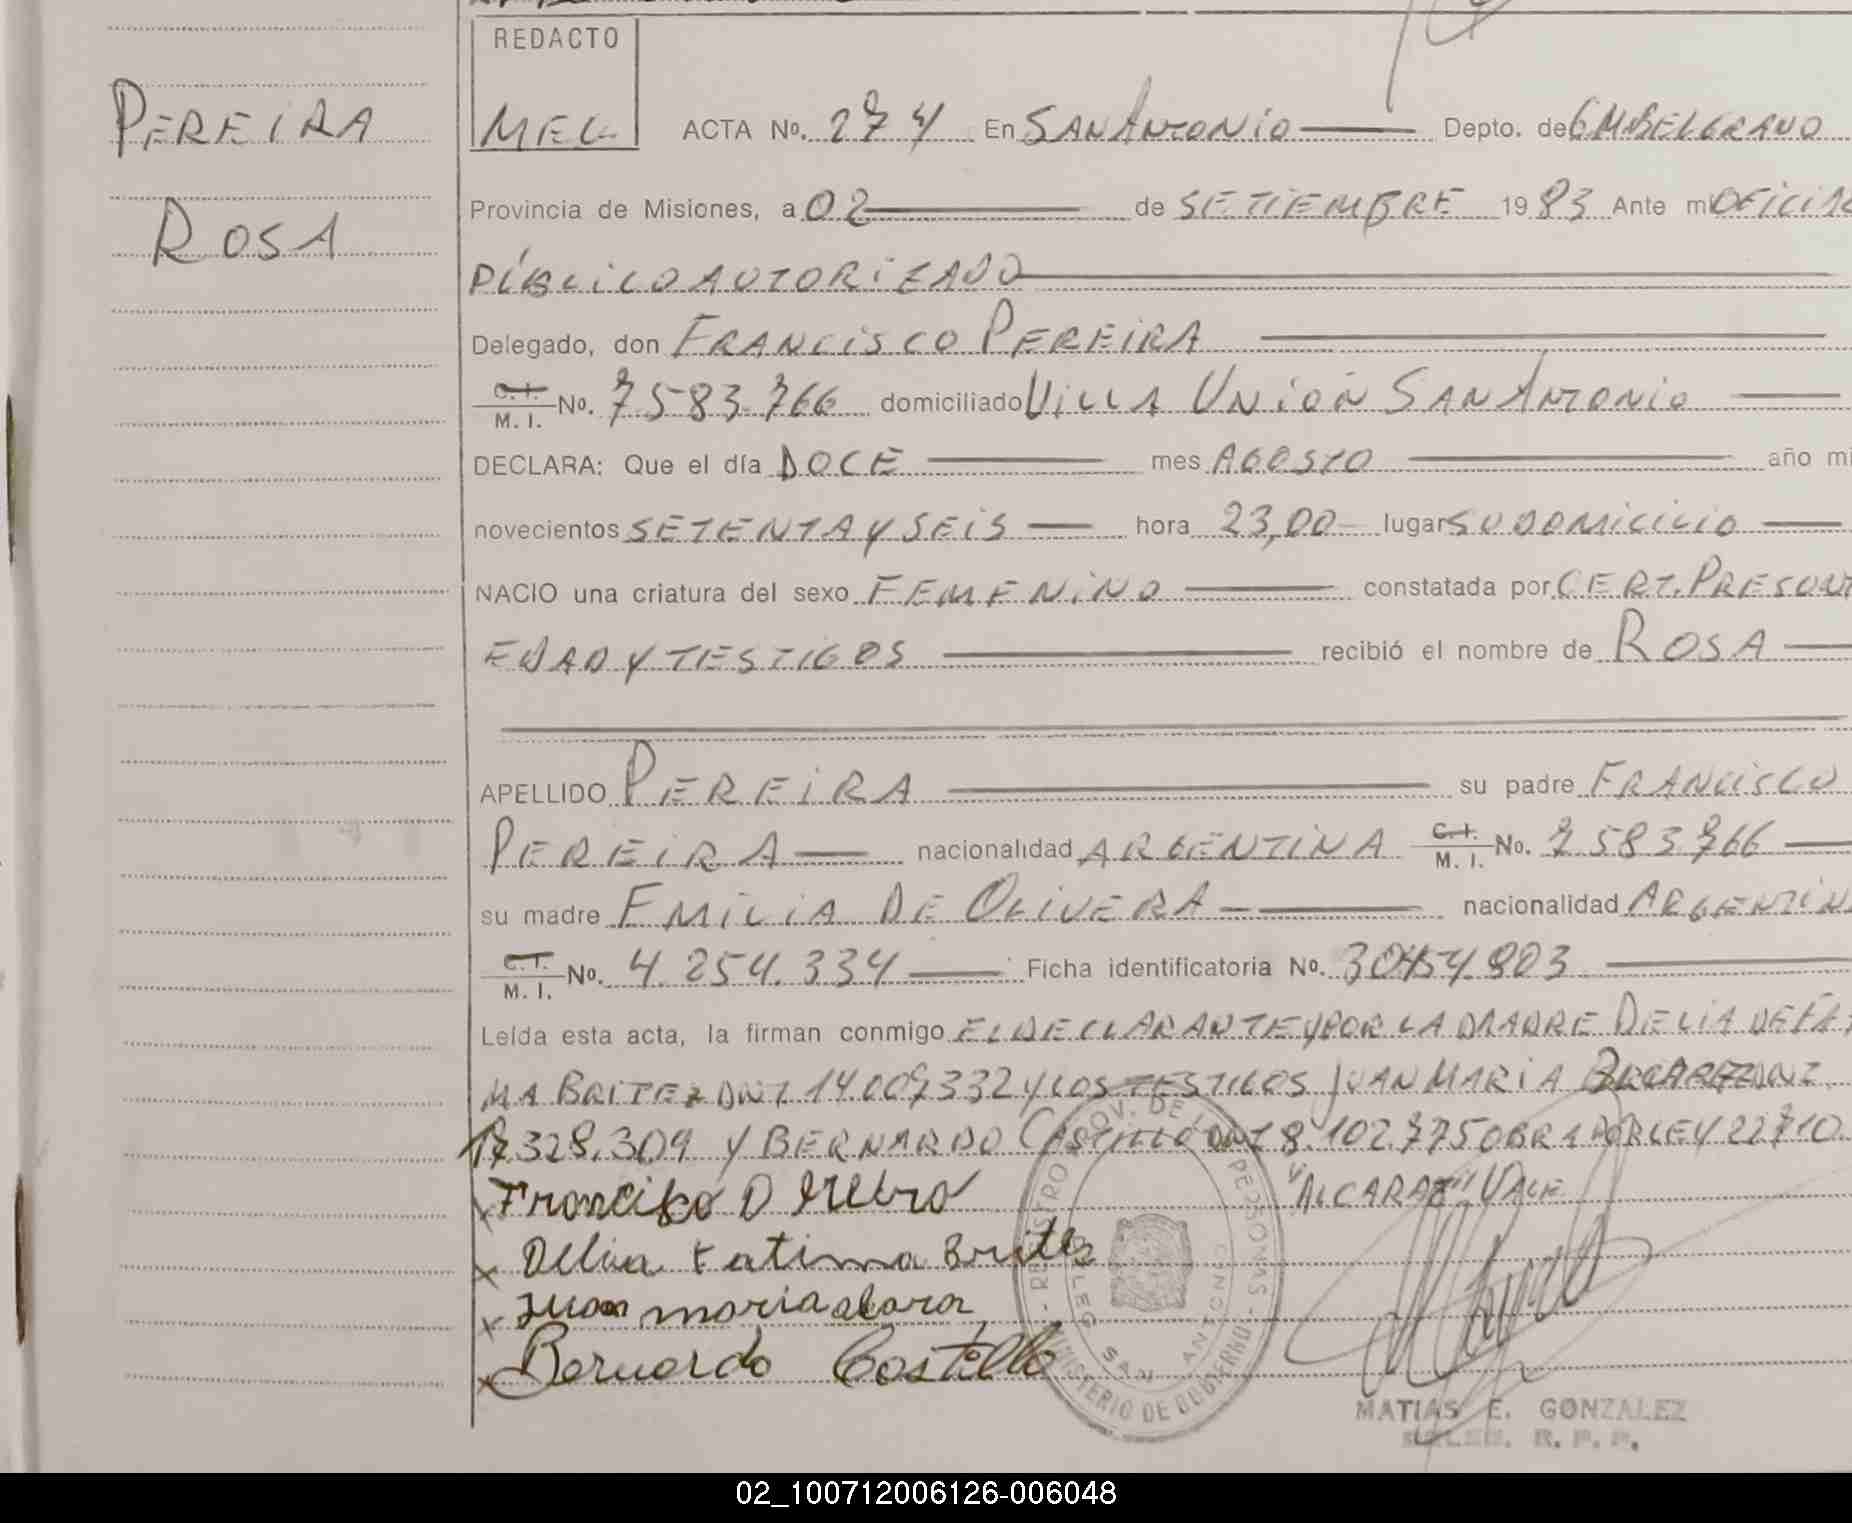 PEREIRA
ROSA
REDACTO
MEG
ACTA No. 274 En SAN ANTONIO Depto. de G M BELGRANO
Provincia de Misiones, a 02 de SETIEMBRE 1983 Ante mi OFICIAL
PÚBLICO AUTORIZADO
Delegado, don FRANCISCO PEREIRA
C. I. / M. I. No. 7583.766 domiciliado VILLA UNIÓN SAN ANTONIO
DECLARA: Que el día DOCE mes AGOSTO año mi
novecientos SETENTA Y SEIS hora 23,00 lugar SU DOMICILIO
NACIO una criatura del sexo FEMENINO constatada por CERT. PRESUNT
EDAD Y TESTIGOS recibió el nombre de ROSA
APELLIDO PEREIRA su padre FRANCISCO
PEREIRA nacionalidad ARGENTINA C. I. / M. I. No. 7583.766
su madre EMILIA DE OLIVERA nacionalidad ARGENTINA
C. I. / M. I. No. 4.254.334 Ficha identificatoria No. 30454803
Leída esta acta, la firman conmigo EL DECLARANTE Y POR LA MADRE DELIA DE FÁTI
MA BRITEZ DNI 14.009332 Y LOS TESTIGOS JUAN MARIA DNI
17.328.309 Y BERNARDO CASTILLO DNI 8.102.775 OBRA POR LEY 22710.
"ALCARAZ" VALE
Delia Fatima Britez
Juan maria alcara
Bernardo Costillo
REGISTRO PROV. DE LAS PERSONAS - MINISTERIO DE GOBIERNO
DELEG SAN ANTONIO
MATIAS E. GONZALEZ
R. P. P.
02_100712006126-006048